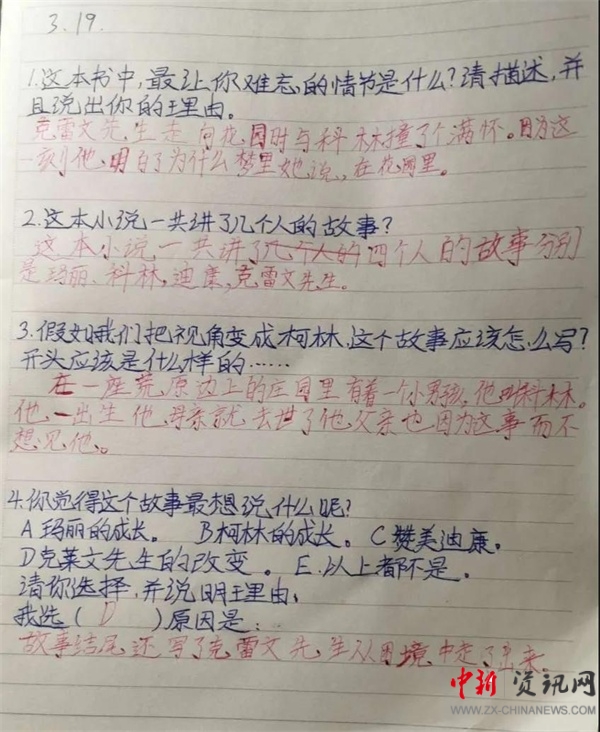 3.19.
1.这本书中,最让你难忘的情节是什么?请描述,并
且说出你的理由。
克雷文先生走向花园时与科林撞了个满怀。因为这
一刻他明白了为什么梦里她说,在花园里。
2.这本小说一共讲了几个人的故事?
这本小说一共讲了几个人的四个人的故事分别
是玛丽、科林,迪康,克雷文先生。
3.假如我们把视角变成柯林,这个故事应该怎么写?
开头应该是什么样的……
在一座荒原边上的庄园里有着一个小男孩,他叫科林。
他一出生他母亲就去世了他父亲也因为这事而不
想见他。
4.你觉得这个故事最想说什么呢?
A玛丽的成长。 B柯林的成长。 C赞美迪康。
D克莱文先生的改变。 E.以上都不是。
请你选择,并说明理由,
我选( D )原因是:
故事结尾还写了克雷文先生从困境中走了出来。
中新资讯网
WWW.ZX-CHINANEWS.COM